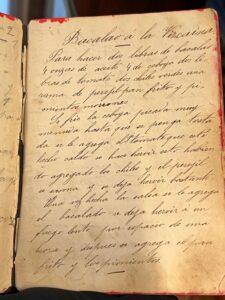 Bacalao a la Vizcaina
Para hacer dos libras de bacalao
4 onzas de aceite, 4 de cebolla dos li-
bras de tomate dos chiles verdes una
rama de perejil pan frito y pi-
mientos morrones
Se frie la cebolla picada muy
menuda hasta que se ponga
da se le agrega el tomate que esté
hecho caldo a hervir este habien
do agregado los chiles y el perejil
se sasona y se deja hervir bastante
Una vez hecha la salsa se le agrega
el bacalado se deja hervir a un
fuego lento por espacio de una
hora y despues se agrega el pan
frito y los pimientos.